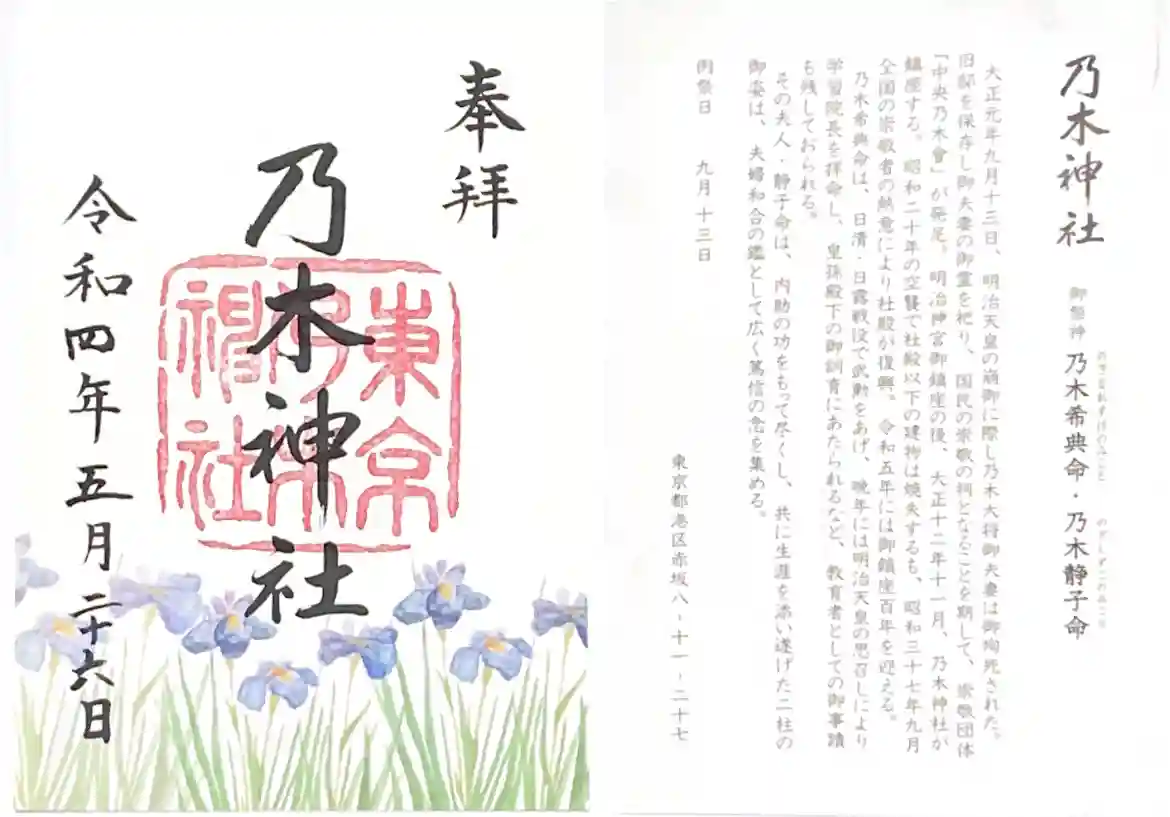 奉拝
乃木神社
東京
乃木
神社
令和四年五月二十六日
乃木神社
御祭神 乃木希典命・乃木静子命
のぎまれすけのみこと
のぎしずこのみこと
大正元年九月十三日、明治天皇の崩御に際し乃木大将御夫妻は御殉死された。
旧邸を保存し御夫妻の御霊を祀り、国民の崇敬の祠となることを期して、崇敬団体
「中央乃木會」が発足。明治神宮御鎮座の後、大正十二年十一月、乃木神社が
鎮座する。昭和二十年の空襲で社殿以下の建物は焼失するも、昭和三十七年九月
全国の崇敬者の熱意により社殿が復興。令和五年には御鎮座百年を迎える。
乃木希典命は、日清・日露戦役で武勲をあげ、晩年には明治天皇の思召しにより
学習院長を拝命し、皇孫殿下の御訓育にあたられるなど、教育者としての御事蹟
も残しておられる。
その夫人・静子命は、内助の功をもって尽くし、共に生涯を添い遂げた二柱の
御姿は、夫婦和合の鑑として広く篤信の念を集める。
例祭日 九月十三日
東京都港区赤坂八-十一-二十七